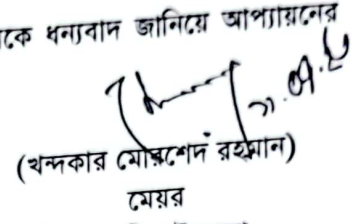 কে ধন্যবাদ জানিয়ে আপ্যায়নের
(খন্দকার মোরশেদ রহমান)
মেয়র